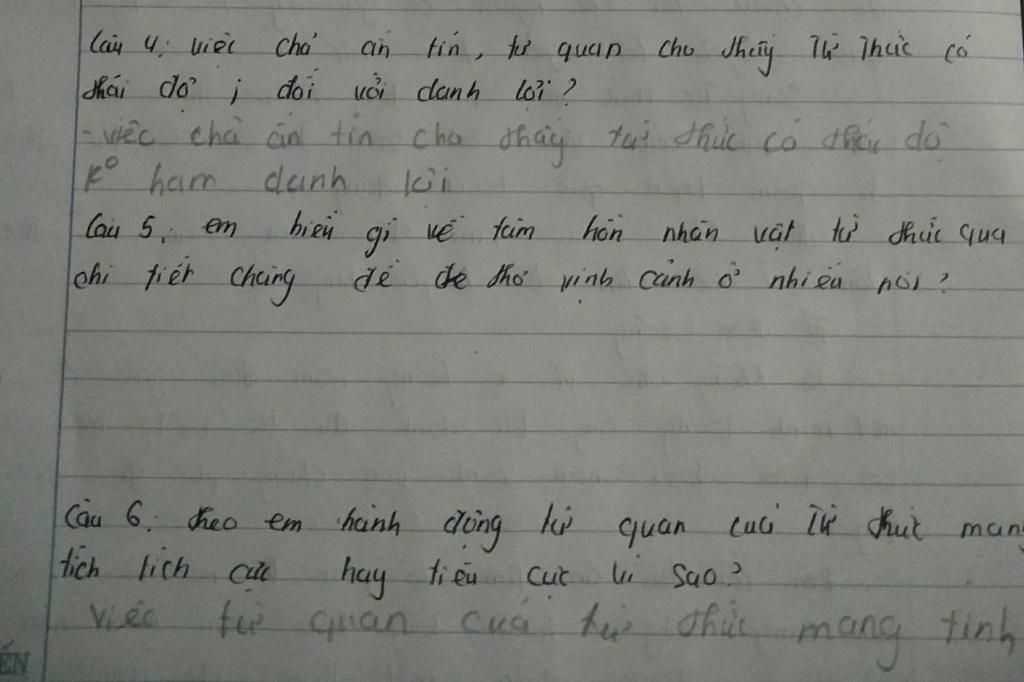 Câu 4: việc chả ấn tín, từ quan cho thấy Từ Thức có
thái độ j đối với danh lợi?
- việc chả ấn tín cho thấy từ thức có thái độ
k° ham danh lợi
Câu 5: em hiểu gì về tâm hồn nhân vật từ thức qua
chi tiết chàng để đề thơ vịnh cảnh ở nhiều nơi?
Câu 6: theo em hành động từ quan cuả Từ thức mang
tích lích cực hay tiêu cực vì sao?
việc từ quan cuả từ thức mang tính
ẾN